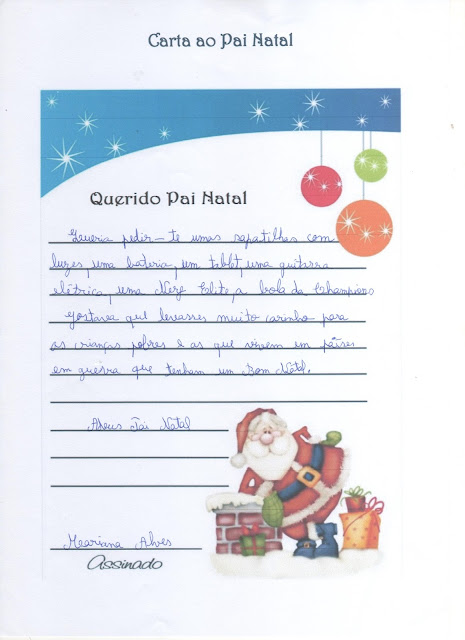 Carta ao Pai Natal
Querido Pai Natal
Queria pedir-te umas sapatilhas com
luzes, uma bateria, um tablet, uma guitarra
elétrica, uma Nerf Elite, a bola da Champions
Gostava que levasses muito carinho para
as crianças pobres e as que vivem em países
em guerra que tenham um Bom Natal.
Adeus Pai Natal
Mariana Alves
Assinado